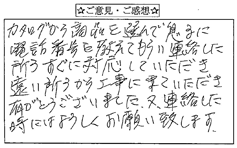 ☆ご意見・ご感想☆
カタログから商品を選んで急に
電話番号を教えてもらい連絡した
所うすぐに対応していただき
遠い所うから工事に来ていただき
有がとうございました。又、連絡した
時にはよろしくお願い致します。